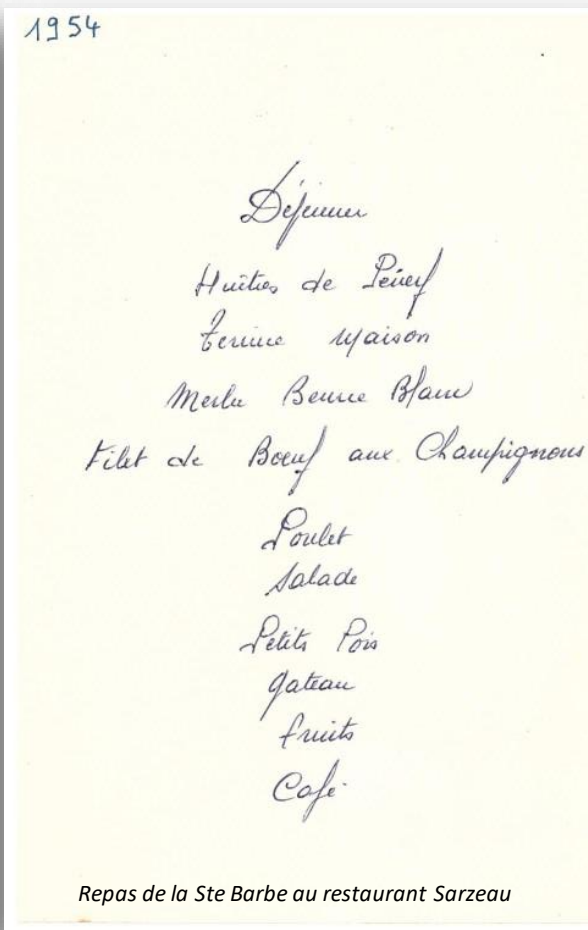 1954
Déjeuner
Huîtres de Pénerf
Terrine Maison
Merlu Beurre Blanc
Filet de Boeuf aux Champignons
Poulet
Salade
Petits Pois
Gateau
fruits
Café
Repas de la Ste Barbe au restaurant Sarzeau